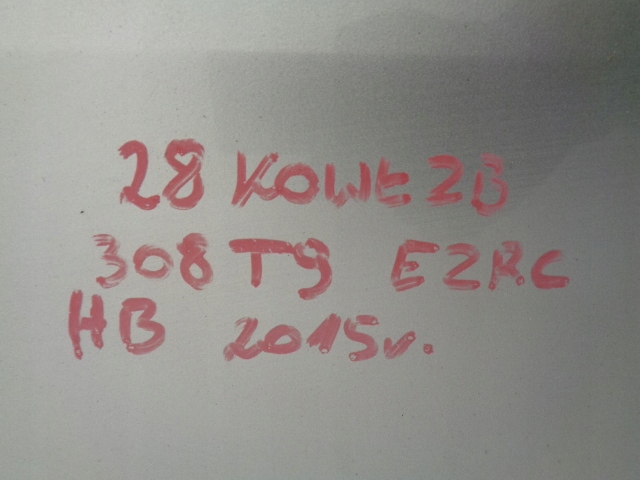 28 KOWŁ ZB
308 T9 EZRC
HB 2015r.